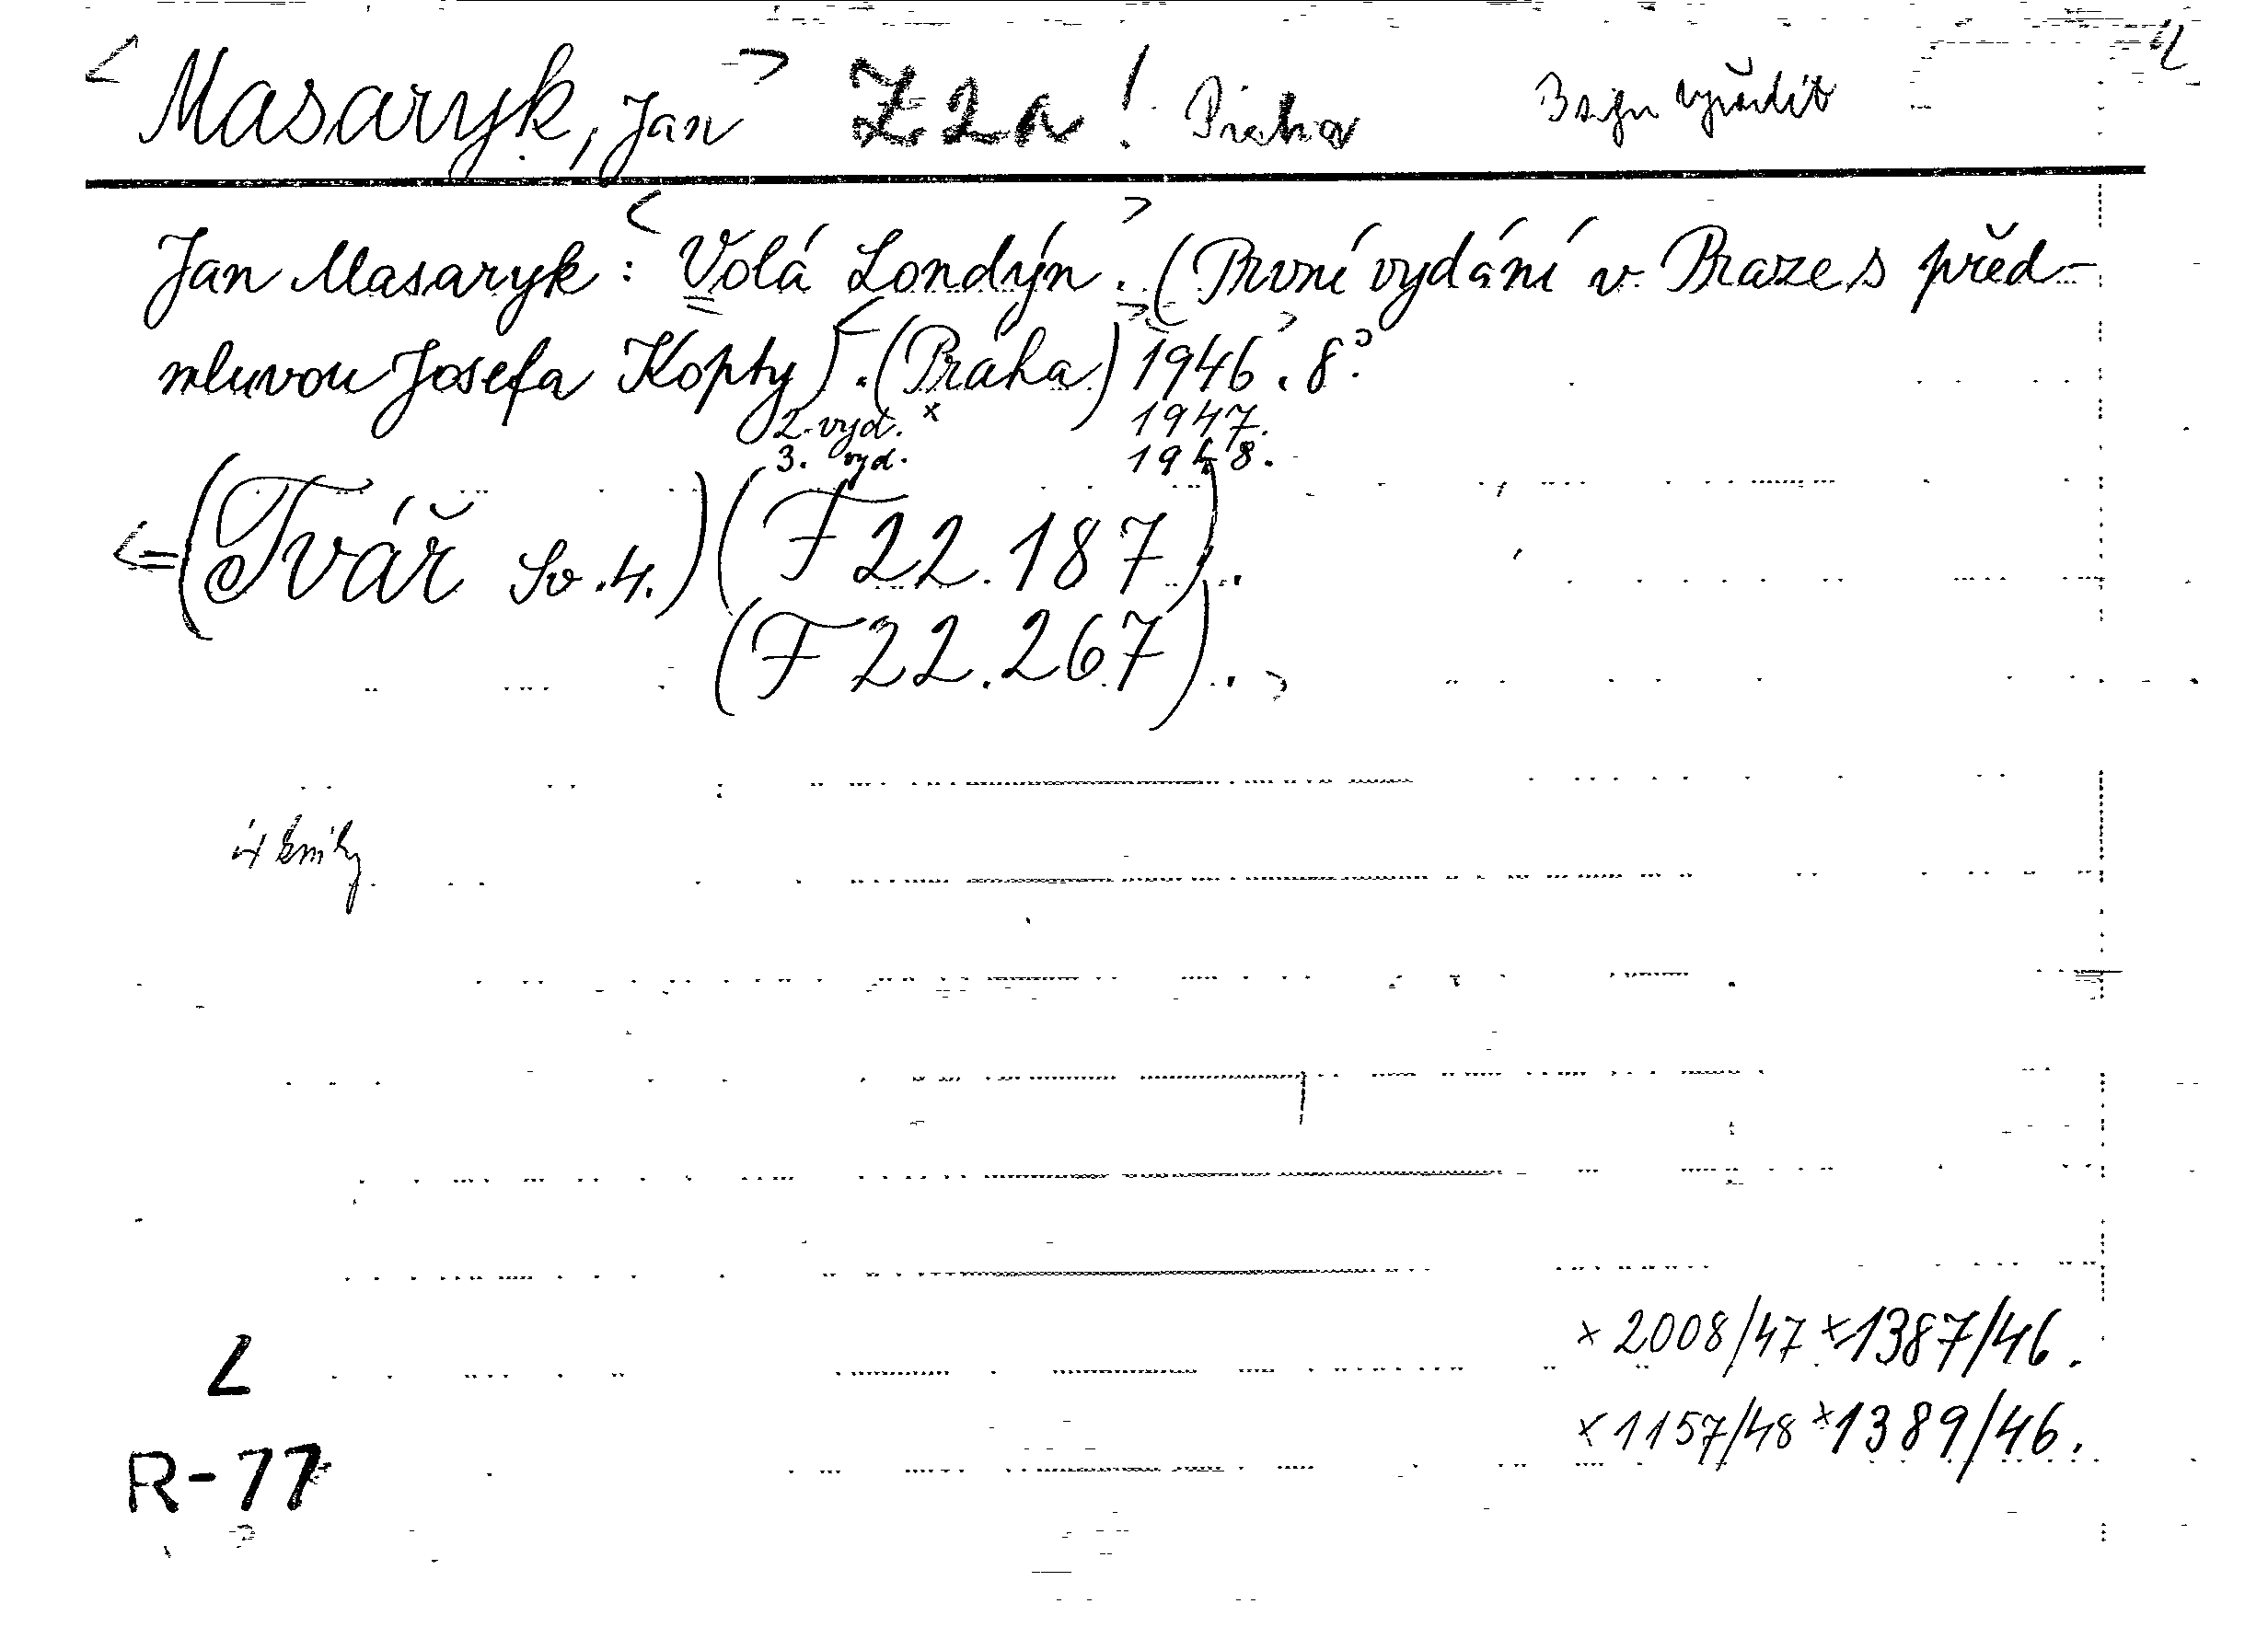 < Masaryk, Jan > Z2a! Praha 3 sign vyřadit
Jan Masaryk: <Volá Londýn.> (První vydání v Praze s před-
mluvou Josefa Kopty). <(Praha) 1946>. 8°.
2. vyd. x 1947.
3. vyd. 1948.
<=(Tvář Sv. 4.) (F 22.187)..
(F 22.267)..>
knihy
x 2008/47 x 1387/46.
L
x 1157/48 x 1389/46.
R-77